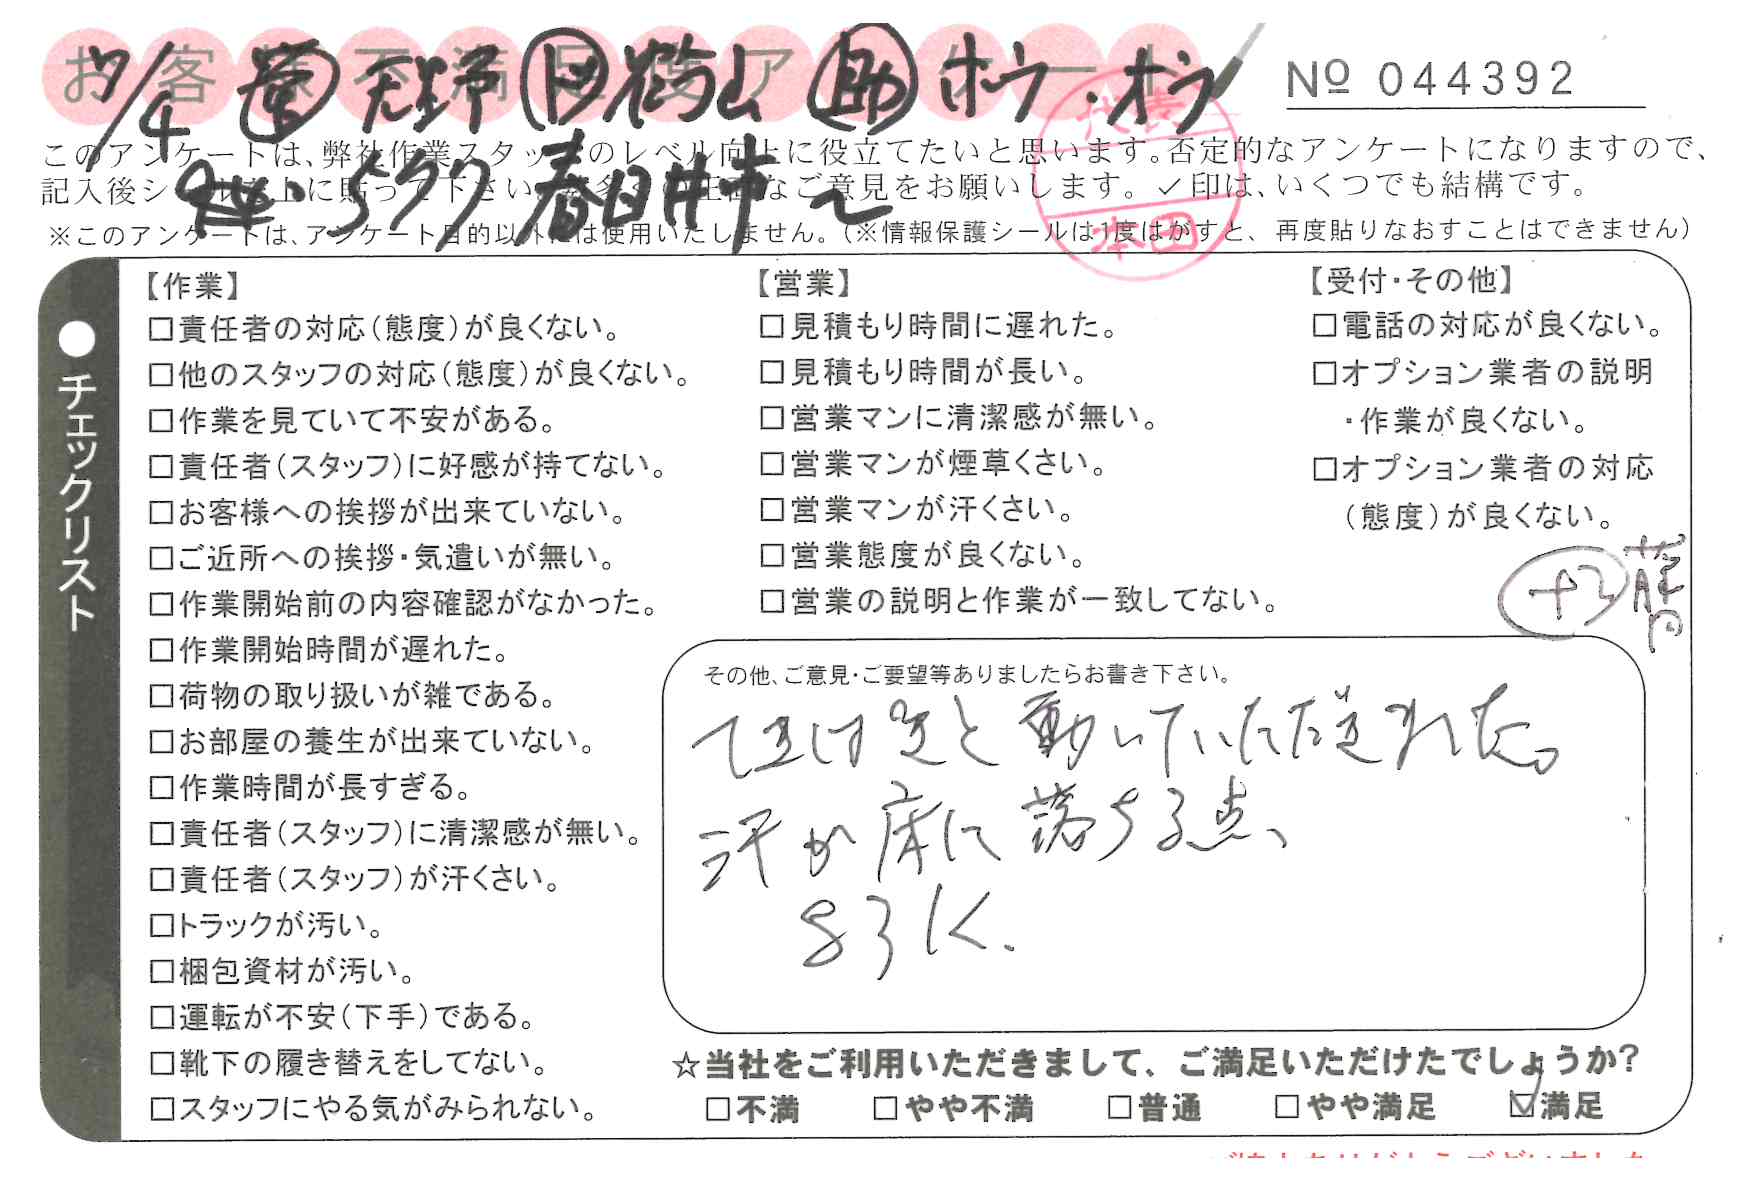 お客様不満足度アンケート
No 044392
7/4 営 天野 ド 鶴山 助 ホウ・オウ
このアンケートは、弊社作業スタッフのレベル向上に役立てたいと思います。否定的なアンケートになりますので、
記入後シールを上に貼って下さい。 ご意見をお願いします。✓印は、いくつでも結構です。
春日井市
※このアンケートは、アンケート目的以外には使用いたしません。(※情報保護シールは1度はがすと、再度貼りなおすことはできません)
代表
本田
●チェックリスト
【作業】
□責任者の対応(態度)が良くない。
□他のスタッフの対応(態度)が良くない。
□作業を見ていて不安がある。
□責任者(スタッフ)に好感が持てない。
□お客様への挨拶が出来ていない。
□ご近所への挨拶・気遣いが無い。
□作業開始前の内容確認がなかった。
□作業開始時間が遅れた。
□荷物の取り扱いが雑である。
□お部屋の養生が出来ていない。
□作業時間が長すぎる。
□責任者(スタッフ)に清潔感が無い。
□責任者(スタッフ)が汗くさい。
□トラックが汚い。
□梱包資材が汚い。
□運転が不安(下手)である。
□靴下の履き替えをしてない。
□スタッフにやる気がみられない。
【営業】
□見積もり時間に遅れた。
□見積もり時間が長い。
□営業マンに清潔感が無い。
□営業マンが煙草くさい。
□営業マンが汗くさい。
□営業態度が良くない。
□営業の説明と作業が一致してない。
【受付・その他】
□電話の対応が良くない。
□オプション業者の説明
・作業が良くない。
□オプション業者の対応
(態度)が良くない。
その他、ご意見・ご要望等ありましたらお書き下さい。
てきぱきと動いていただきれた。
汗が床に落ちる点、
☆当社をご利用いただきまして、ご満足いただけたでしょうか?
□不満 □やや不満 □普通 □やや満足 ☑満足